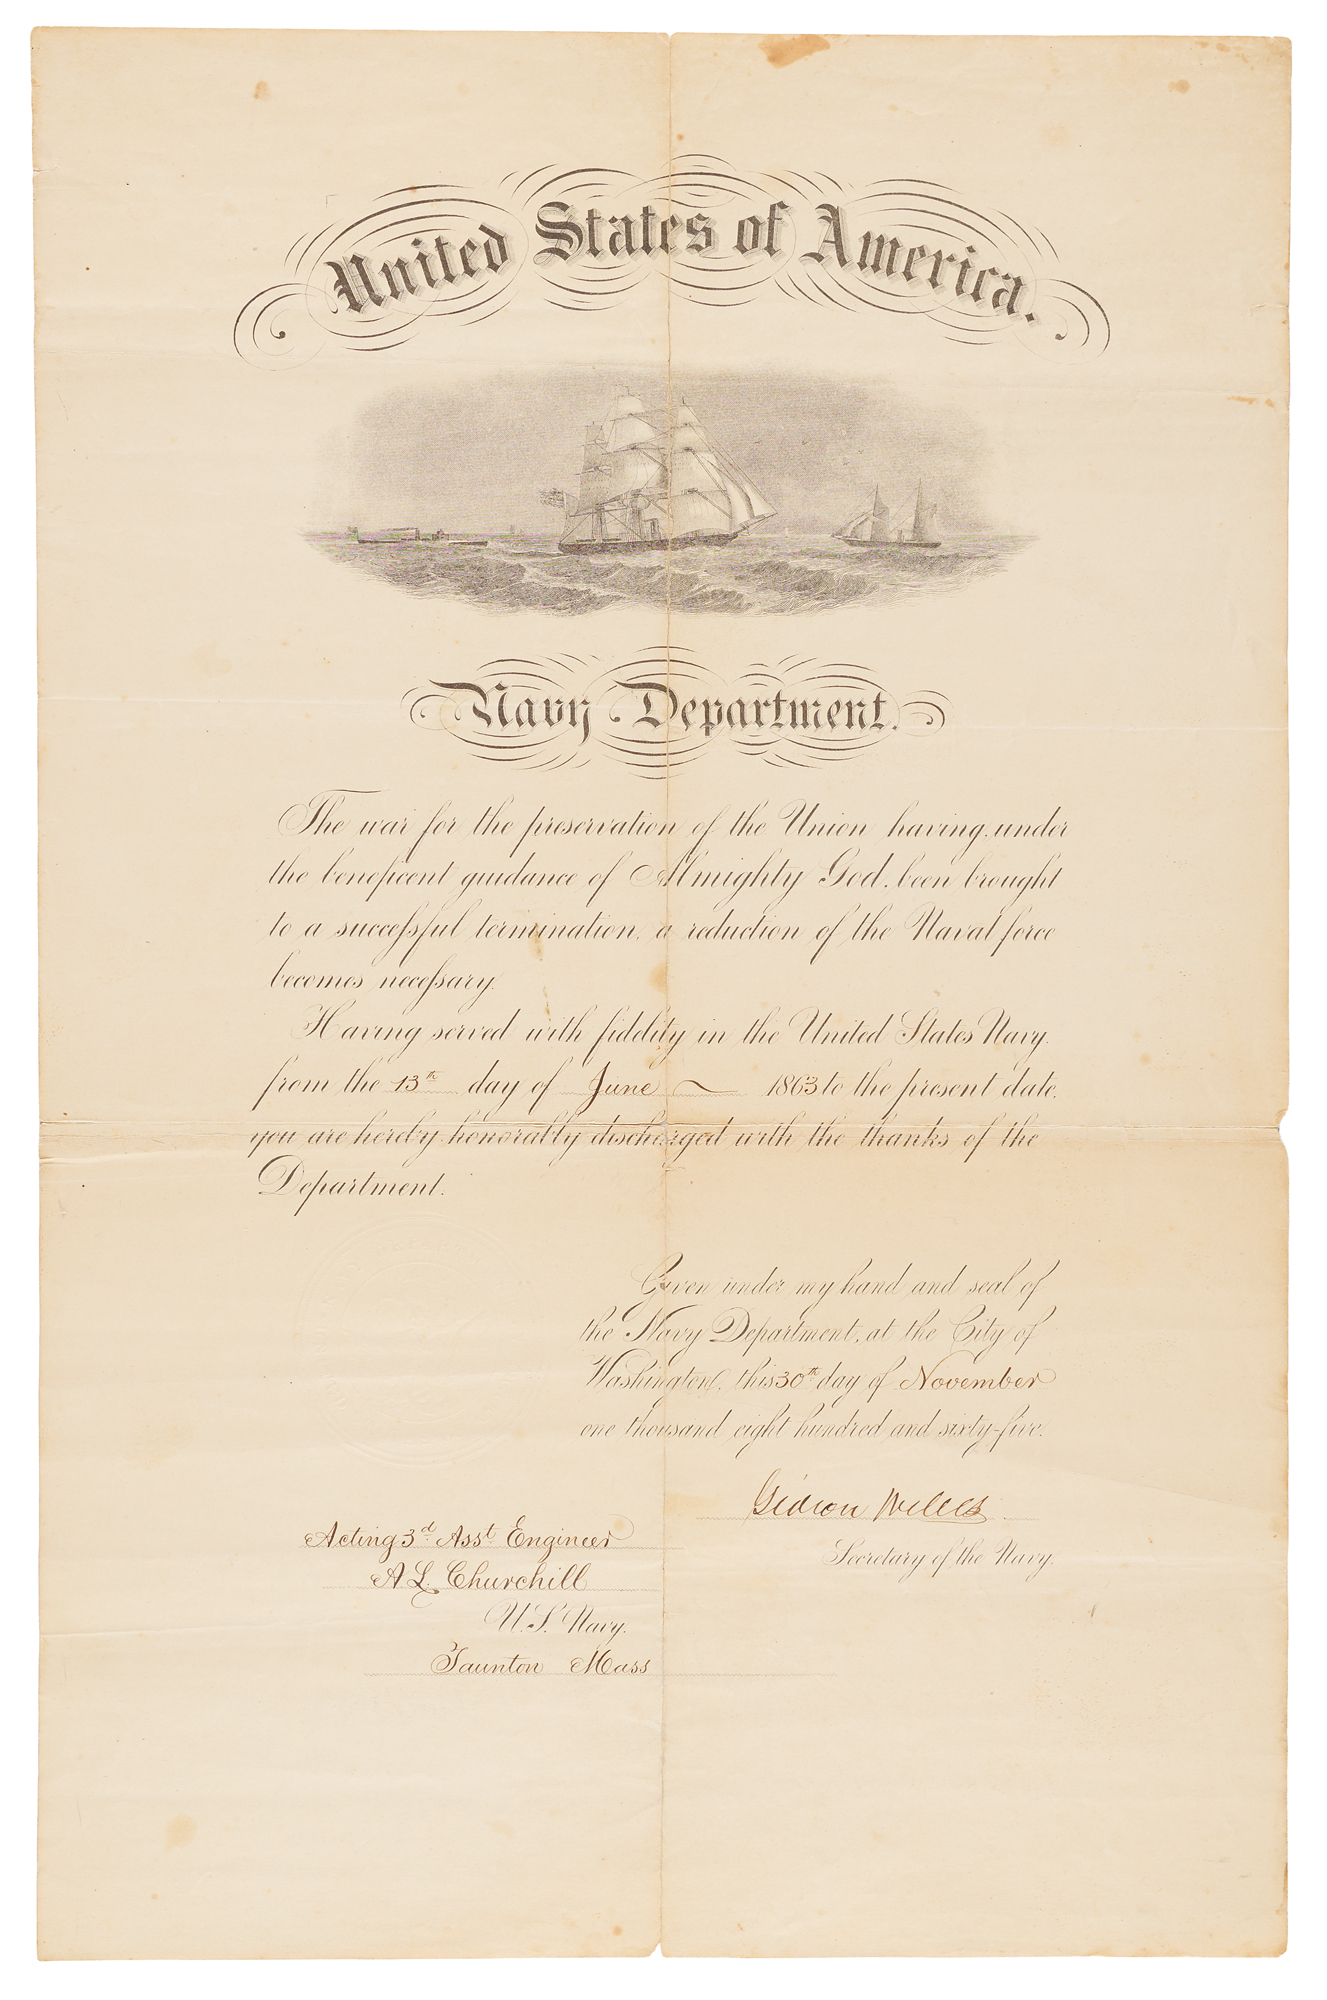 United States of America.
Navy Department.
The war for the preservation of the Union having, under
the beneficent guidance of Almighty God, been brought
to a successful termination, a reduction of the Naval force
becomes necessary.
Having served with fidelity in the United States Navy,
from the 13th day of June 1863 to the present date,
you are hereby honorably discharged with the thanks of the
Department.
Given under my hand and seal of
the Navy Department, at the City of
Washington, this 30th day of November
one thousand eight hundred and sixty-five.
Gideon Welles
Secretary of the Navy.
Acting 3d Asst Engineer
A L. Churchill
U.S. Navy.
Taunton Mass